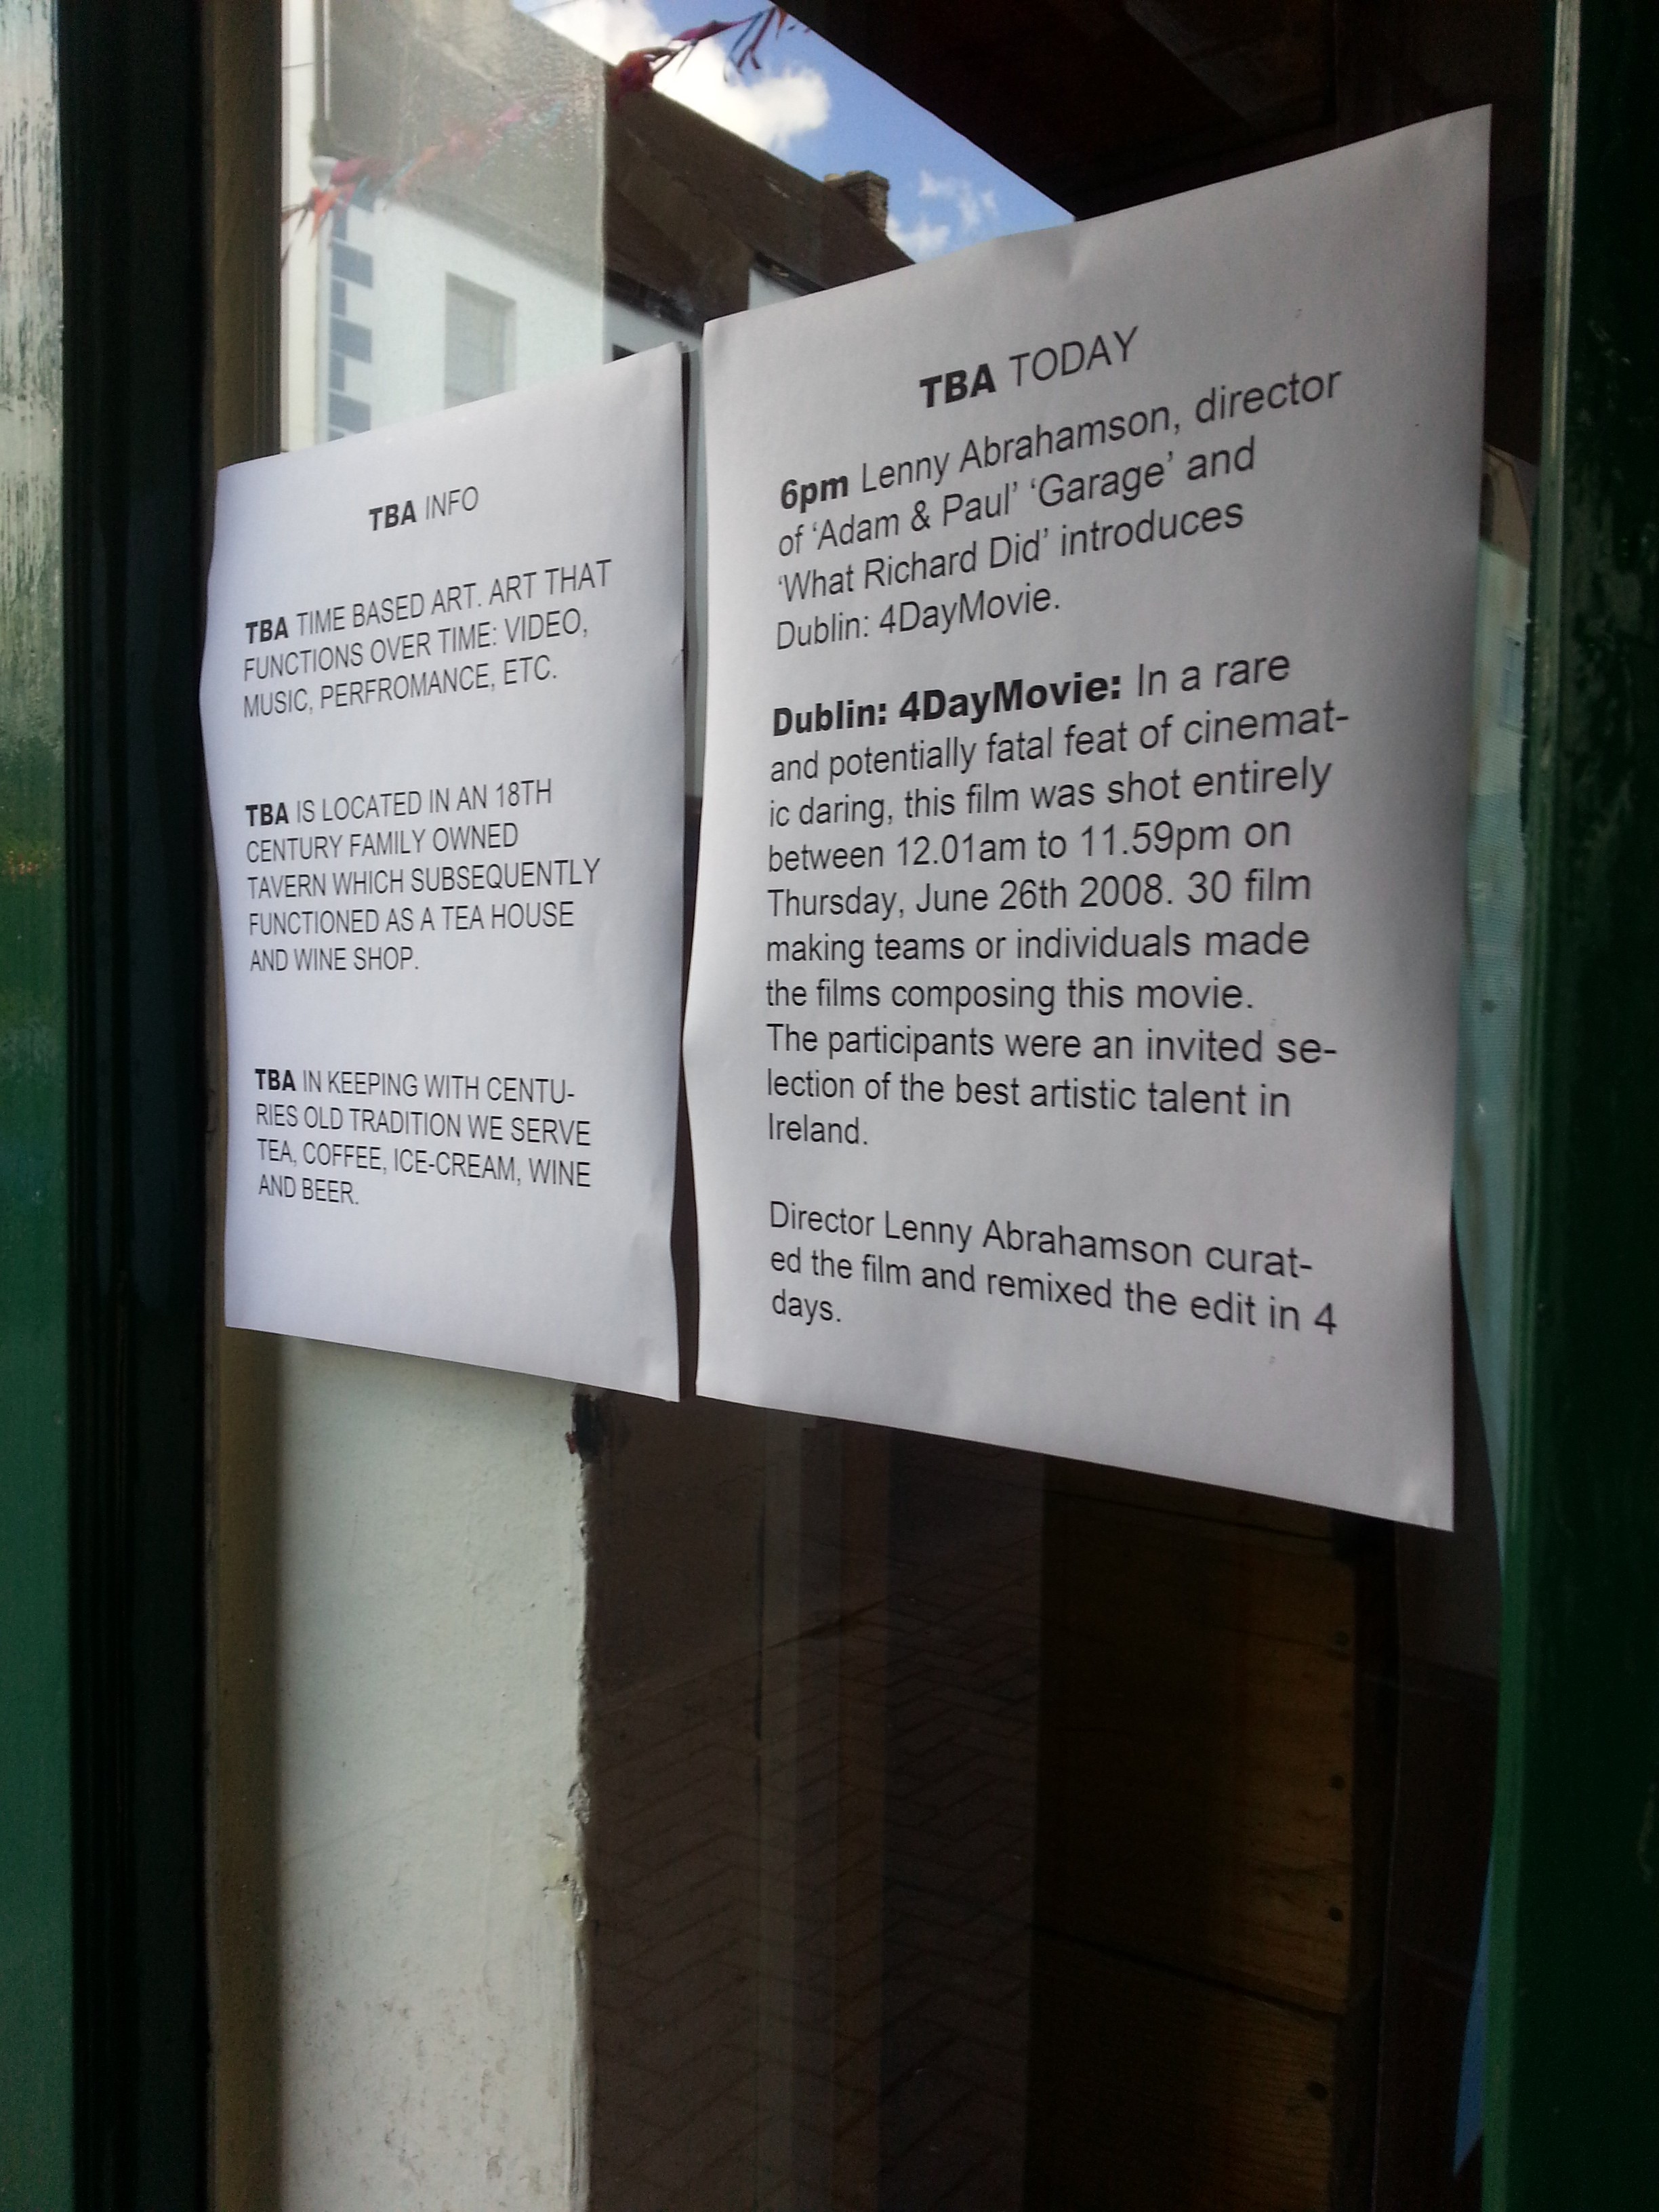 TBA INFO
TBA TIME BASED ART. ART THAT
FUNCTIONS OVER TIME: VIDEO,
MUSIC, PERFROMANCE, ETC.
TBA IS LOCATED IN AN 18TH
CENTURY FAMILY OWNED
TAVERN WHICH SUBSEQUENTLY
FUNCTIONED AS A TEA HOUSE
AND WINE SHOP.
TBA IN KEEPING WITH CENTU-
RIES OLD TRADITION WE SERVE
TEA, COFFEE, ICE-CREAM, WINE
AND BEER.
TBA TODAY
6pm Lenny Abrahamson, director
of ‘Adam & Paul’ ‘Garage’ and
‘What Richard Did’ introduces
Dublin: 4DayMovie.
Dublin: 4DayMovie: In a rare
and potentially fatal feat of cinemat-
ic daring, this film was shot entirely
between 12.01am to 11.59pm on
Thursday, June 26th 2008. 30 film
making teams or individuals made
the films composing this movie.
The participants were an invited se-
lection of the best artistic talent in
Ireland.
Director Lenny Abrahamson curat-
ed the film and remixed the edit in 4
days.